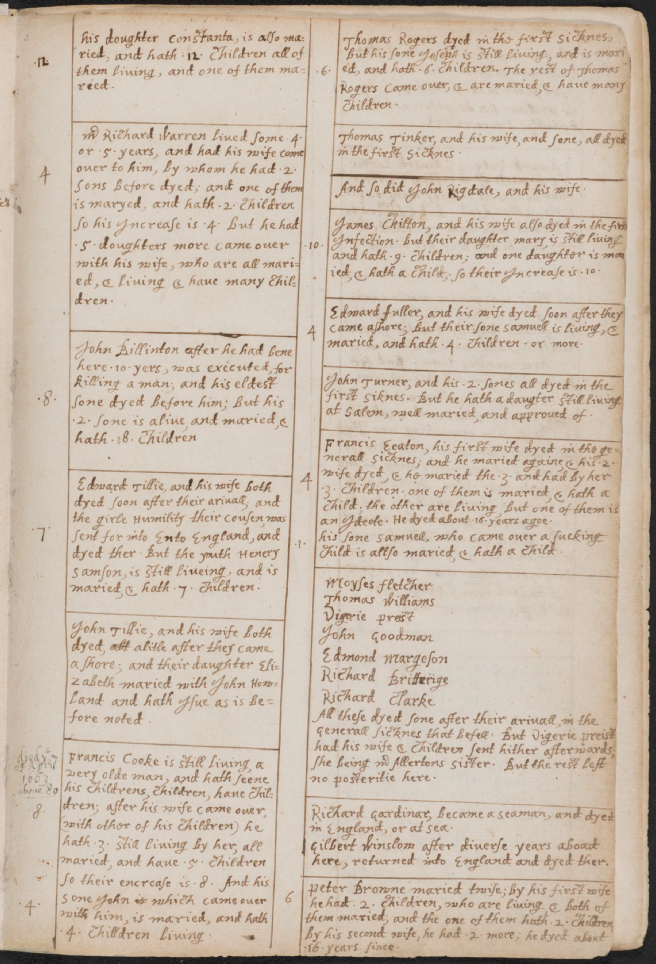 .12.
his doughter Constanta, is also ma:
ried, and hath .12. Children all of
them living, and one of them ma=
ried.
4
mr Richard Warren lived some .4.
or .5. years, and had his wife come
over to him, by whom he had .2.
sons before dyed; and one of them
is maryed, and hath .2. Children
So his Increase is .4. But he had
.5. doughters more came over
with his wife, who are all mari=
ed, & living & have many Chil=
dren.
.8.
John Billinton after he had bene
here .10. yers, was executed, for
killing a man; and his eldest
sone dyed before him; But his
.2. sone is alive, and maried, &
hath .8. Children
7
Edward Tillie, and his wife both
dyed soon after their arivall; and
the girle Humility their cousen, was
sent for into Ento England, and
dyed ther. But the youth Henery
Samson, is still liveing, and is
maried, & hath .7. Children.
John Tillie, and his wife both
dyed, alitle after they came
ashore; and their daughter Eli=
zabeth maried with John How=
land and hath Issue as is be=
fore noted.
1663
above 80
8
Francis Cooke is still living, a
very olde man, and hath seene
his Childrens, Children, have Chil=
dren; after his wife came over,
(with other of his Children) he
hath .3. still living by her, all
maried, and have .5. Children
so their encrease is .8. And his
sone John which came over
with him, is maried, and hath
.4. Chilldren living.
4.
.6.
Thomas Rogers dyed in the first sicknes,
But his sone Joseph is still living, and is mari
ed, and hath .6. Children. The rest of Thomas
Rogers came over, & are maried, & have many
Children.
Thomas Tinker, and his wife, and sone, all dyed
in the first sicknes.
And so did John Rigdale, and his wife.
.10.
James Chilton, and his wife also dyed in the first
Infection. But their daughter mary, is still living
and hath .9. Children; and one daughter is mar
ied, & hath a Child; so their Increase is .10.
4
Edward fuller, and his wife dyed soon after they
came ashore; But their sone Samuell is living, &
maried, and hath .4. Children or more.
John Turner, and his .2. sones all dyed in the
first siknes. But he hath a daugter still living
at Salem, well maried, and approved of.
4
Francis Eeaton, his first wife dyed in the ge=
nerall sicknes; and he maried againe, & his .2.
wife dyed, & he maried the .3. and had by her
.3. Children. one of them is maried, & hath a
Child; the other are living, but one of them is
an Ideote. He dyed about .16. years agoe.
.1.
his sone Samuell, who came over a sucking
Child is allso maried, & hath a Child.
Moyses fletcher
Thomas Williams
Digerie preist
John Goodman
Edmond Margeson
Richard Britterige
Richard Clarke
All these dyed sone after their arivall, in the
Generall sicknes that befell. But Digerie preist
had his wife & Children sent hither afterwards
she being mr Allertons sister. But the rest left
no posteritie here.
Richard Gardinar, became a seaman, and dyed
in England, or at sea.
Gilbert Winslow after diverse years aboad
here, returned into England and dyed ther.
6
Peter Browne maried twise; by his first wife
he had .2. Children, who are living & both of
them maried; and the one of them hath .2. Children
by his second wife, he had .2. more; he dyed about
.16. years since.